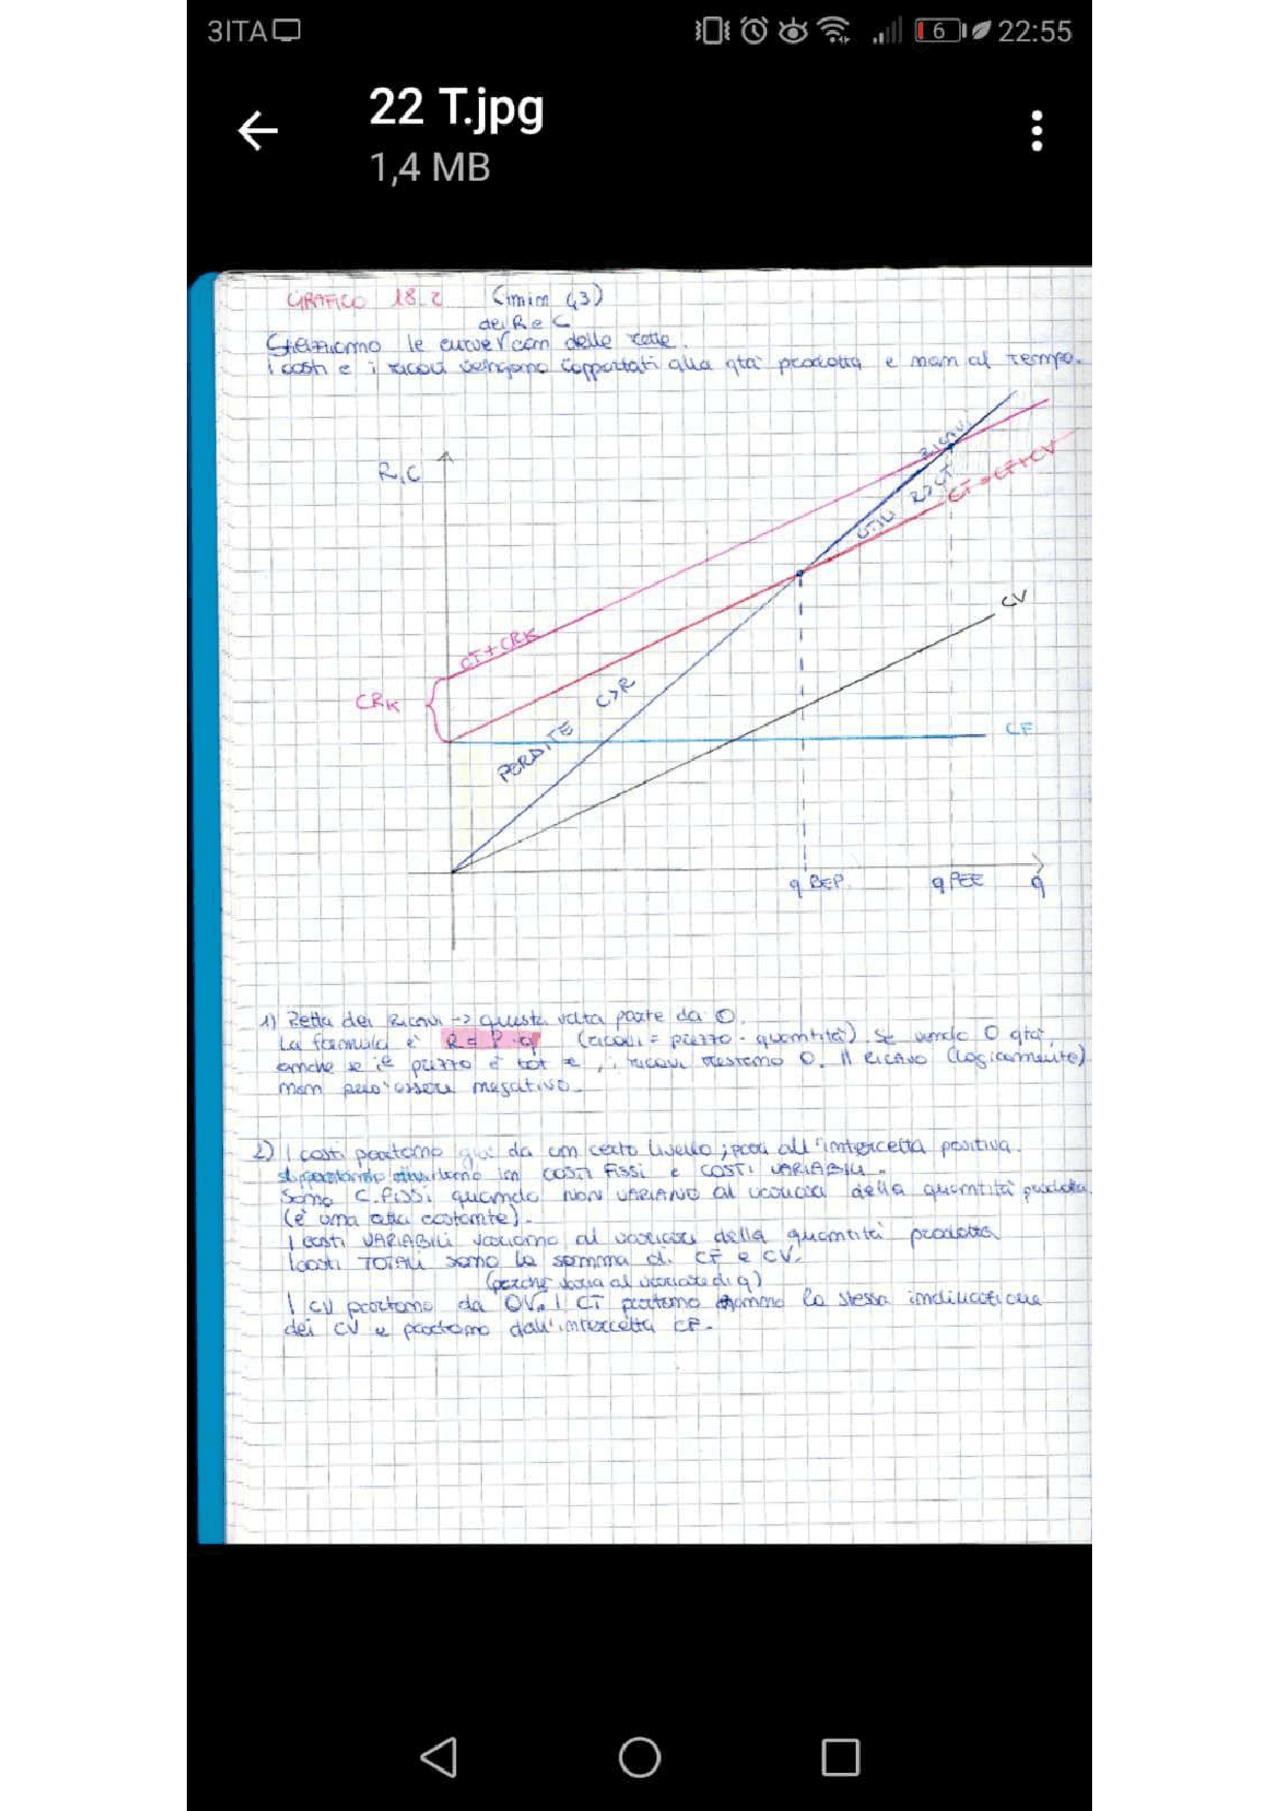 3ITA
6
22:55
22 T.jpg
1,4 MB
GRAFICO 18.2 (min 43)
dei R e C
Stimiamo le curve con delle rette.
I costi e i ricavi vengono rapportati alla qtà prodotta e non al tempo.
R,C
RICAVI
UTILI R>CT
CT=CF+CV
CV
CT+CRK
CRK
PERDITE C>R
CF
q BEP
q PEE
q
1) Retta dei Ricavi -> questa volta parte da 0.
La formula è R = P·q (ricavi = prezzo · quantità). Se vendo 0 qtà,
anche se il prezzo è tot €, i ricavi restano 0. Il ricavo (logicamente)
non può essere negativo.
2) I costi partono già da un certo livello, all'intercetta positiva.
in COSTI FISSI e COSTI VARIABILI.
Sono C. FISSI quando NON VARIANO al variare della quantità prodotta
(è una costante).
I costi VARIABILI variano al variare della quantità prodotta
I costi TOTALI sono la somma di CF e CV.
(perché varia al variare di q)
I CV partono da 0 I CT hanno la stessa inclinazione
dei CV e partono dall'intercetta CF.